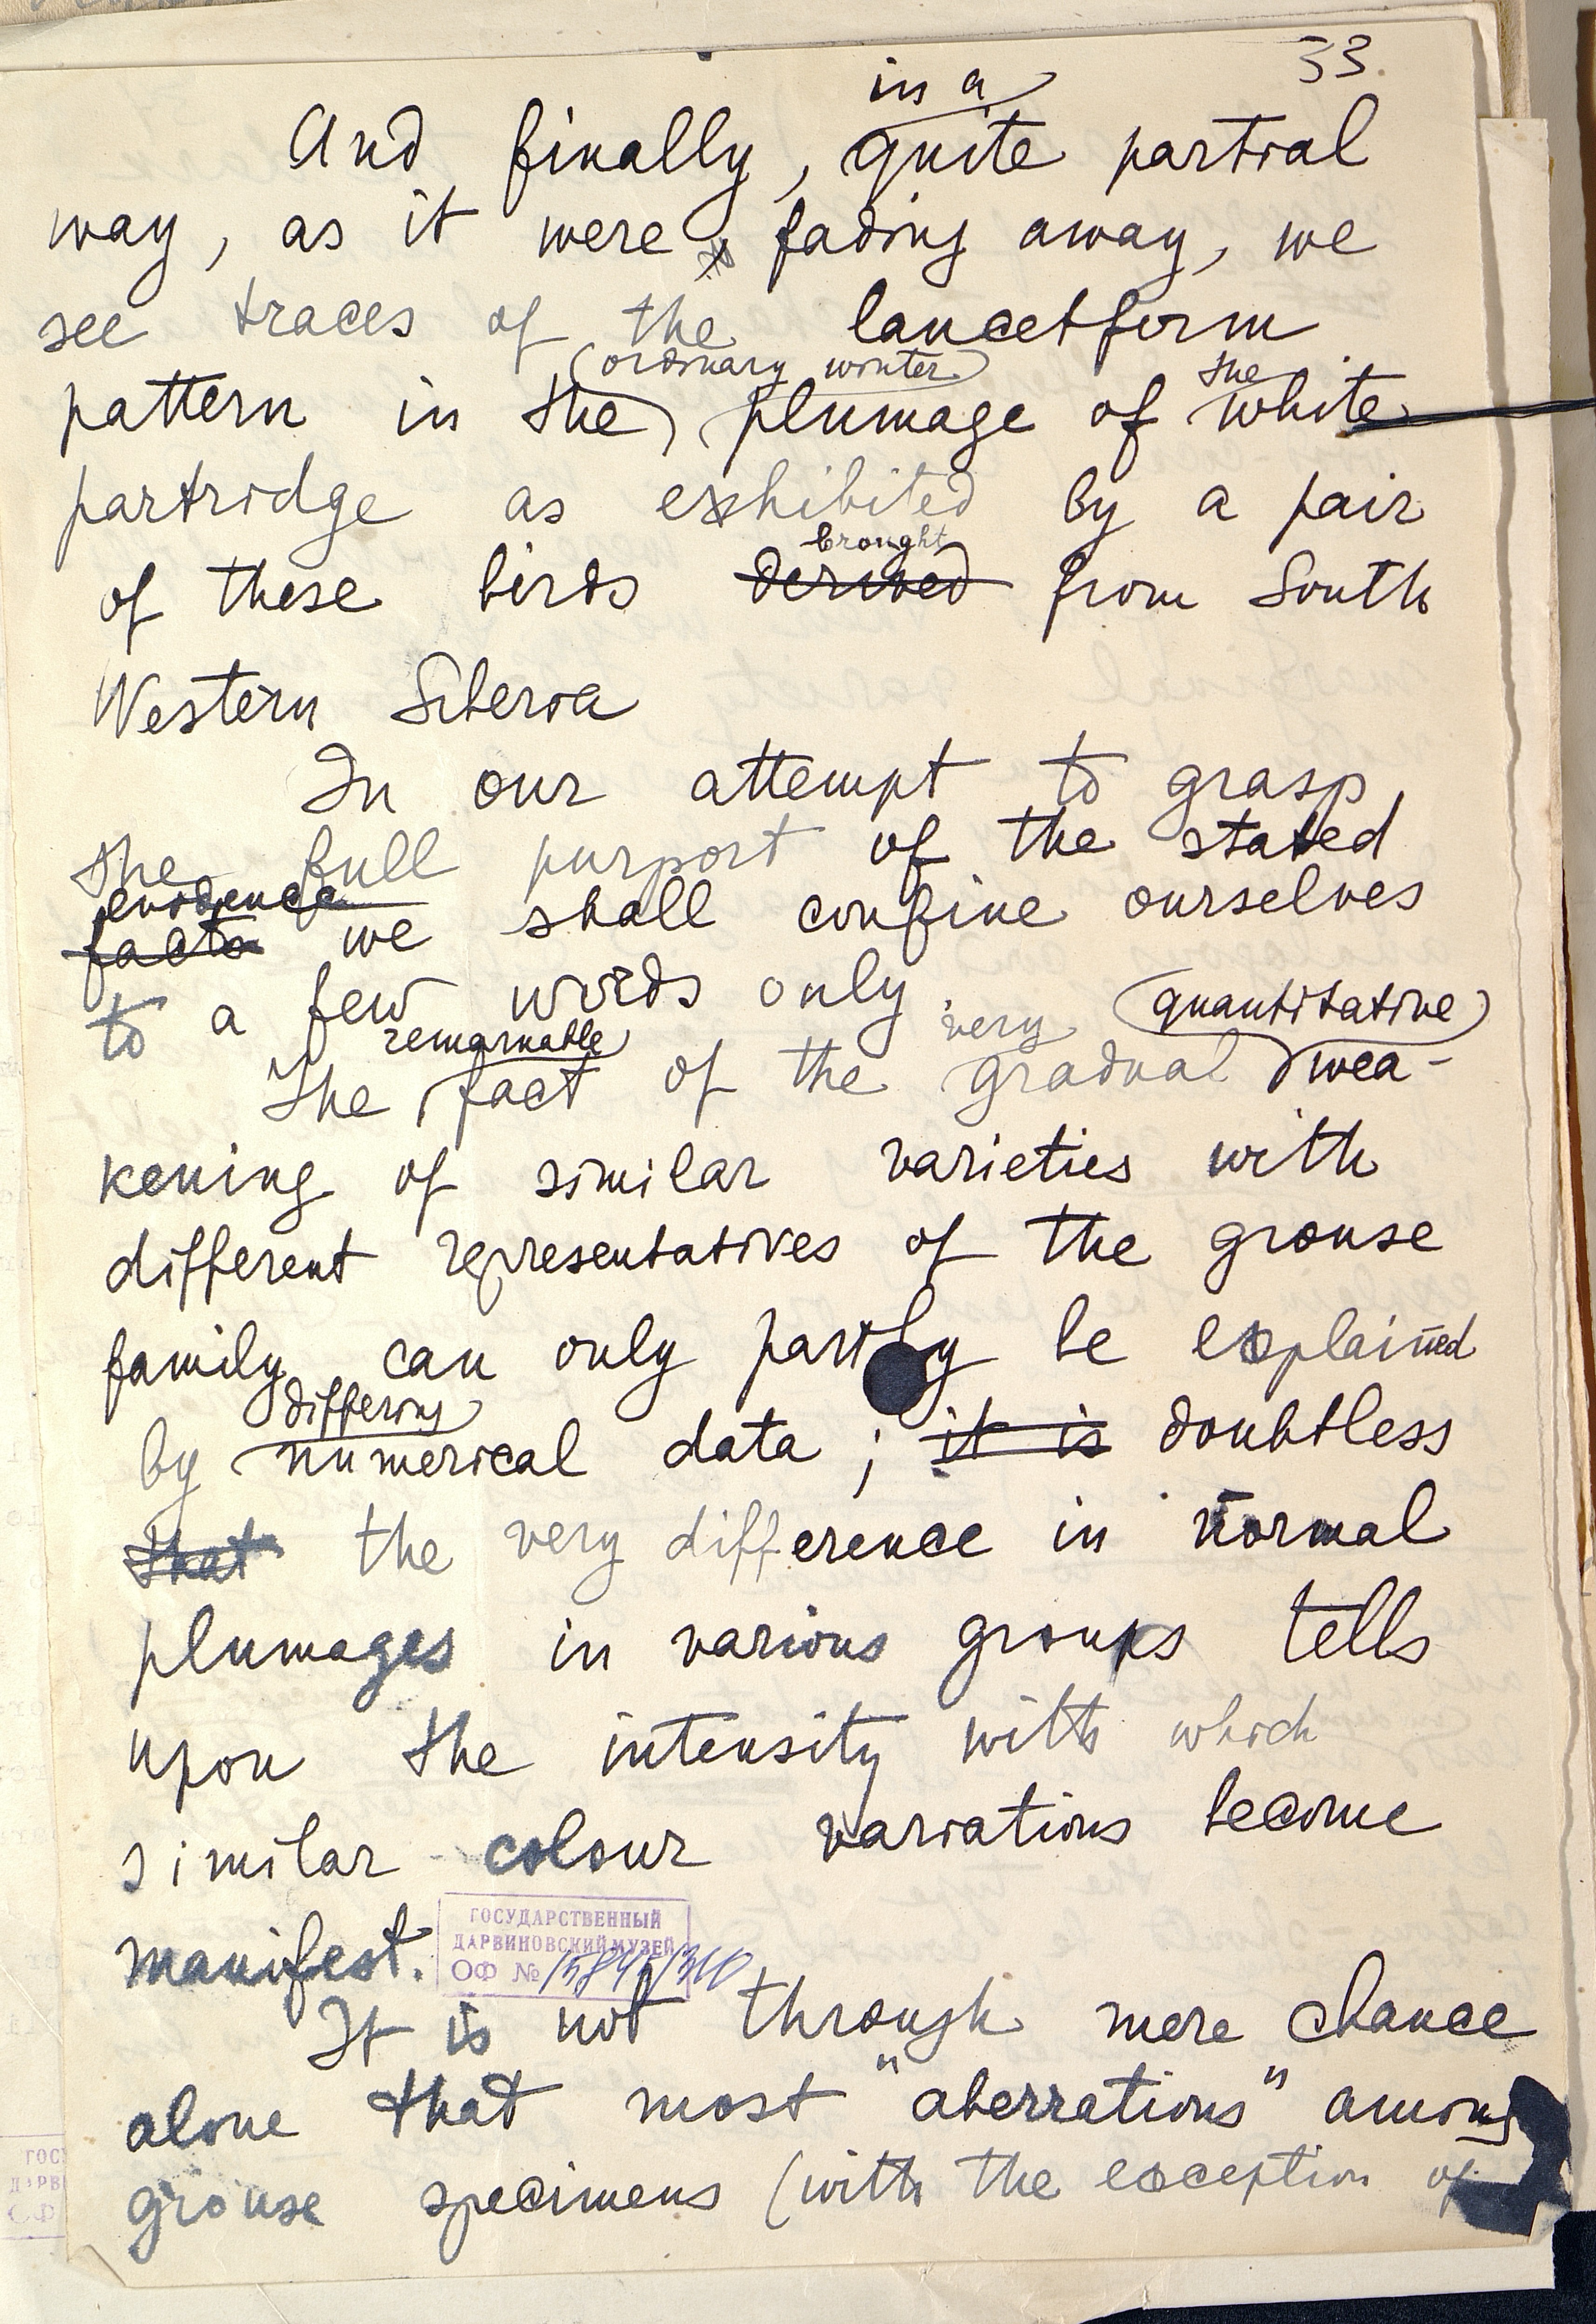 33.
in a
And finally, quite partial
way, as it were fading away, we
see traces of the lancetform
(ordinary winter) the
pattern in the plumage of white
partridge as exhibited by a pair
brought
of these birds derived from South
Western Siberia
In our attempt to grasp
the full purport of the stated
evidence
facts we shall confine ourselves
to a few words only.
remarkable very quantitative
The fact of the gradual wea-
kening of similar varieties with
different representatives of the grouse
family can only partly be explained
differing
by numerical data; it is doubtless
that the very difference in normal
plumages in various groups tells
upon the intensity with which
similar colour variations become
manifest.
ГОСУДАРСТВЕННЫЙ
ДАРВИНОВСКИЙ МУЗЕЙ
ОФ №
It is not through mere chance
alone that most "aberrations" among
grouse specimens (with the exception of